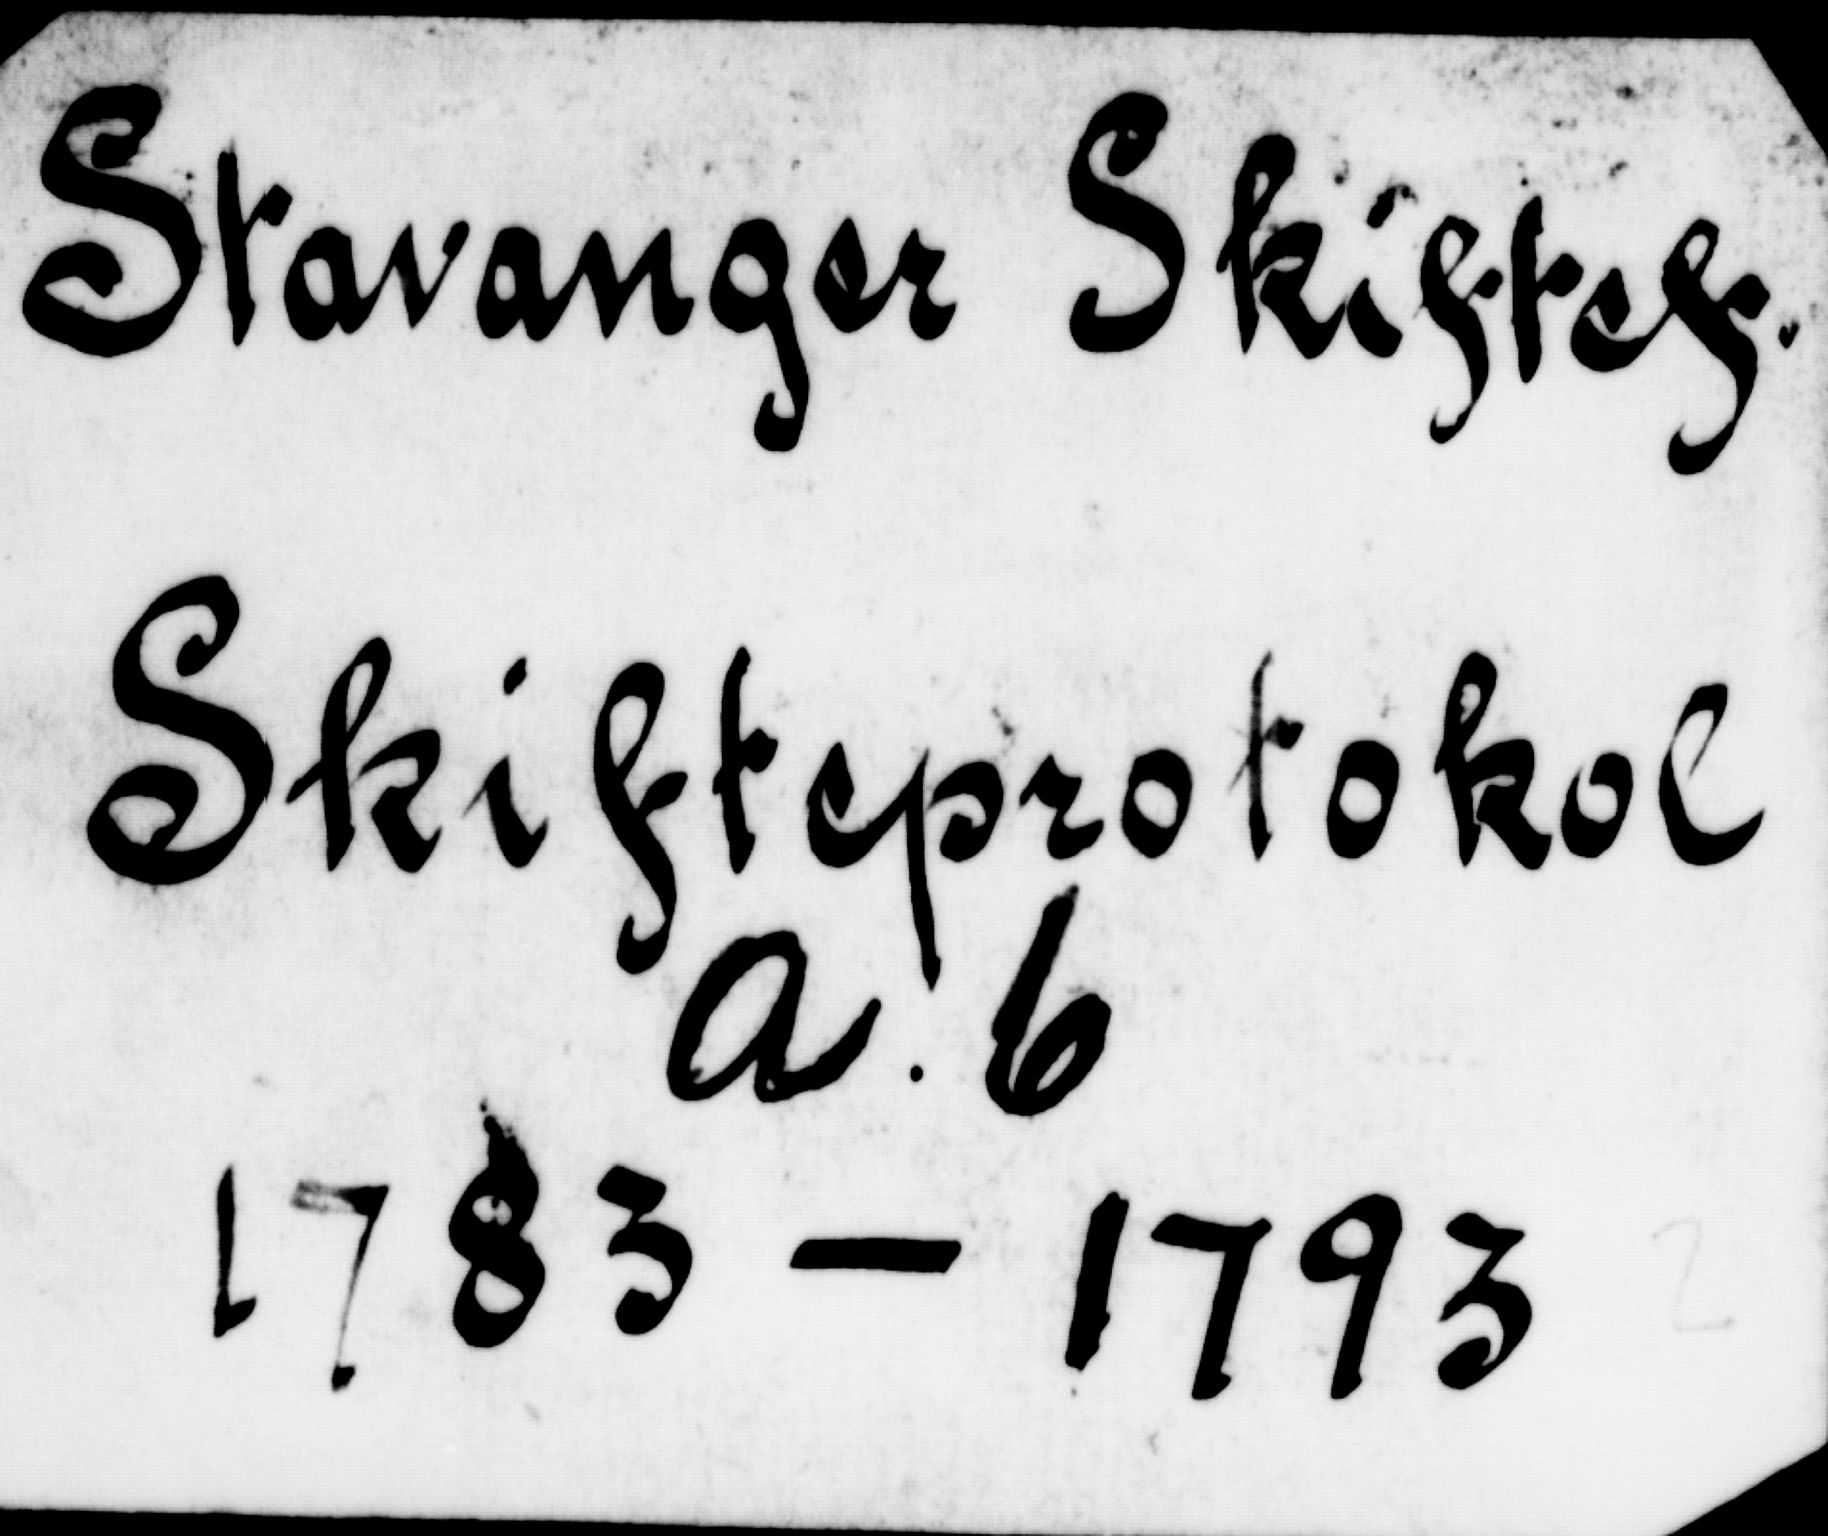 Stavanger Skiftef.
Skifteprotokol
a. 6
1783 — 1793
2